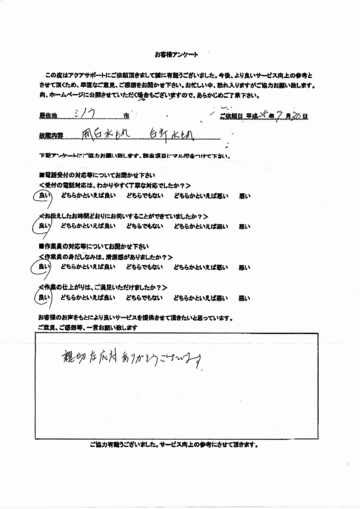 お客様アンケート
この度はアクアサポートにご依頼頂きまして誠に有難うございました。今後、より良いサービス向上の参考と
させて頂くため、率直なご意見、ご感想をお聞かせ下さい。お忙しい中、恐れ入りますがご協力お願い致します。
尚、ホームページに公開させていただく場合もございますので、あらかじめご了承下さい。
居住地 ミノウ 市 ご依頼日 平成 年 7 月 30 日
故障内容 風呂水もれ 台所水もれ
下記アンケートにご協力お願い致します。該当項目に丸印をつけて下さい。
■電話受付の対応等についてお聞かせ下さい
＜受付の電話対応は、わかりやすく丁寧な対応でしたか？＞
良い どちらかといえば良い どちらでもない どちらかといえば悪い 悪い
＜お伝えしたお時間どおりにお伺いすることができていましたか？＞
良い どちらかといえば良い どちらでもない どちらかといえば悪い 悪い
■作業員の対応等についてお聞かせ下さい
＜作業員の身だしなみは、清潔感がありましたか？＞
良い どちらかといえば良い どちらでもない どちらかといえば悪い 悪い
＜作業の仕上がりは、ご満足いただけましたか？＞
良い どちらかといえば良い どちらでもない どちらかといえば悪い 悪い
お客様のお声をもとにより良いサービスを提供させて頂きたいと思っています。
ご意見、ご感想等、一言お願い致します
親切な応対ありがとうございます
ご協力有難うございました。サービス向上の参考にさせて頂きます。